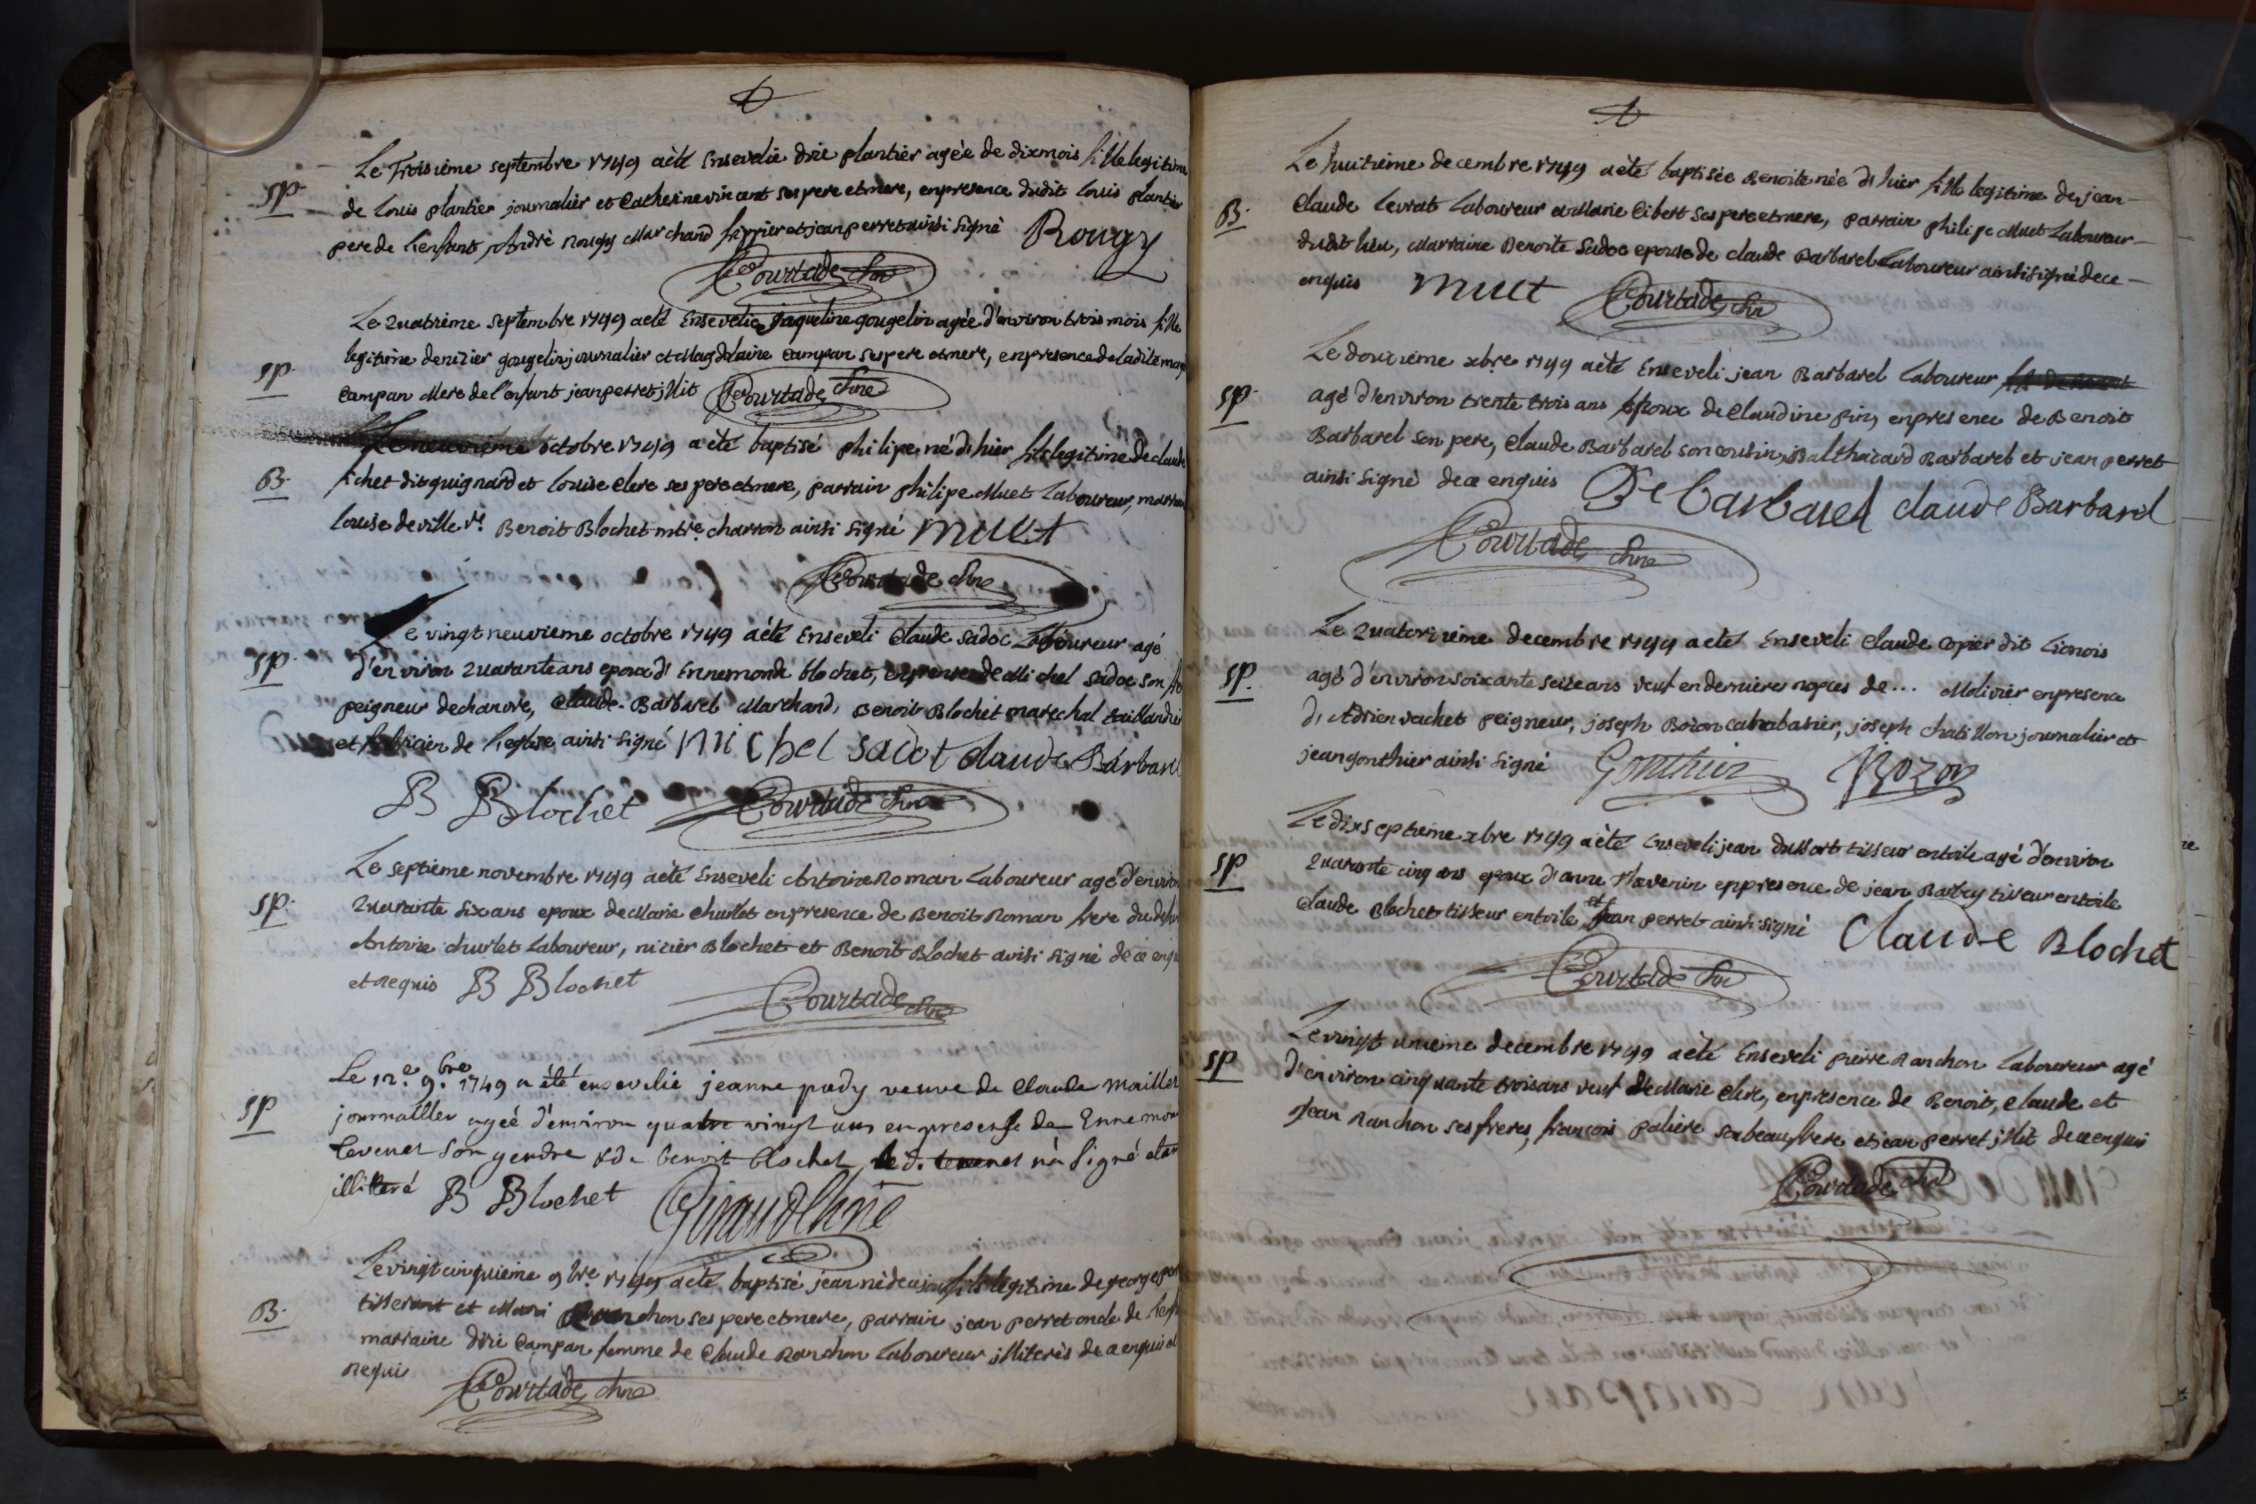 Le Troisième septembre 1749 aèté Ensevelie drie plantier agéé de dixmois fille legitime
sp. de Louis plantier journalier et Catherine vincent ses pere et mere, en presence dudit Louis plantier
pere de l'enfant, André Rougy Marchand frippier et jean perret ainsi signé Rougy
Courtade Cure
Le Quatrième septembre 1749 aeté Ensevelie jaqueline gougelin agée d'environ trois mois fille
sp. legitime de nizier gougelin journalier et Magdelaine Campan ses pere et mere, en presence de ladite
Campan Mere de l'enfant jean perret illit Courtade Cure
octobre 1749 a èté baptisé philipe né d'hier fils legitime de claude
B. fichet dit guignard et Louise Clere ses pere et mere, parrain philipe Muet Laboureur,
Louise deville vᵉ Benoit Blochet mtre charron ainsi signé muet
Courtade Cure
Le vingt neuvieme octobre 1749 aèté Enseveli Claude Sadoc Laboureur agé
sp. d'environ Quarante ans epoux d'Ennemonde blochet, en presence de Michel Sadoc son
peigneur de chanvre, Claude Barbarel Marchand, Benoit Blochet marechal taillandier
et fabricien de l'eglise ainsi signé Michel Sadot Claude Barbarel
B Blochet Courtade Cure
Le septieme novembre 1749 aèté Enseveli Antoine Roman Laboureur agé d'environ
sp. Quarante six ans epoux de Marie Churlet en presence de Benoit Roman frere du
Antoine churlet Laboureur, nizier Blochet et Benoit Blochet ainsi signé de ce
et Requis B Blochet Courtade Cure
Le 12e 9bre 1749 a été ensevelie jeanne pady veuve de Claude
sp journallier agéé d'environ quatre vingt ans en presense de
tevenet son gendre & de benoit blochet, le d. tevenet n'a signé
illitteré B Blochet Giraud Cure
Le vingt cinquieme 9bre 1749 aèté baptisé jean né fils legitime de george
B. tisserant et ses pere et mere, parrain jean perret oncle de
marraine drie Campan femme de Claude Ranchon Laboureur illiterés de ce enquis et
Requis Courtade Cure
Le huitième decembre 1749 aèté baptisée Benoite née d'hier fille legitime de jean
B. Claude Levrat Laboureur et Marie Cibert ses pere et mere, parrain philipe Muet Laboureur
dudit lieu, Marraine Benoite Sadoc epouse de claude Barbarel Laboureur ainsi signé de ce
enquis muet Courtade Cure
Le douzième xbre 1749 aèté Enseveli jean Barbarel Laboureur
sp. agé d'environ trente trois ans Epoux de Claudine Pin, en presence de Benoit
Barbarel son pere, Claude Barbarel son cousin, Balthazard Barbarel et jean perret
ainsi signé de ce enquis Be barbarel claude Barbarel
Courtade Cure
Le Quatorzième decembre 1749 aèté Enseveli Claude Copier dit Lionois
sp. agé d'environ soixante seize ans veuf en dernieres nopces de... Molivier en presence
d'Adrien vachet peigneur, joseph Bozon cabaratier, joseph chatillon journalier et
jean gonthier ainsi signé Gonthier Bozon
Le dixseptième xbre 1749 aèté Enseveli jean tisseur en toile agé d'environ
sp Quarante cinq ans epoux d'anne Thevenin en presence de jean tisseur en toile
Claude Blochet tisseur en toile et jean perret ainsi signé Claude Blochet
Courtade Cure
Le vingt unieme decembre 1749 aèté Enseveli pierre Ranchon Laboureur agé
sp d'environ cinquante trois ans veuf de Marie Clere, en presence de Benoit, Claude et
Jean Ranchon ses freres, françois paliere son beaufrere et jean perret illit de ce enquis
Courtade Cure